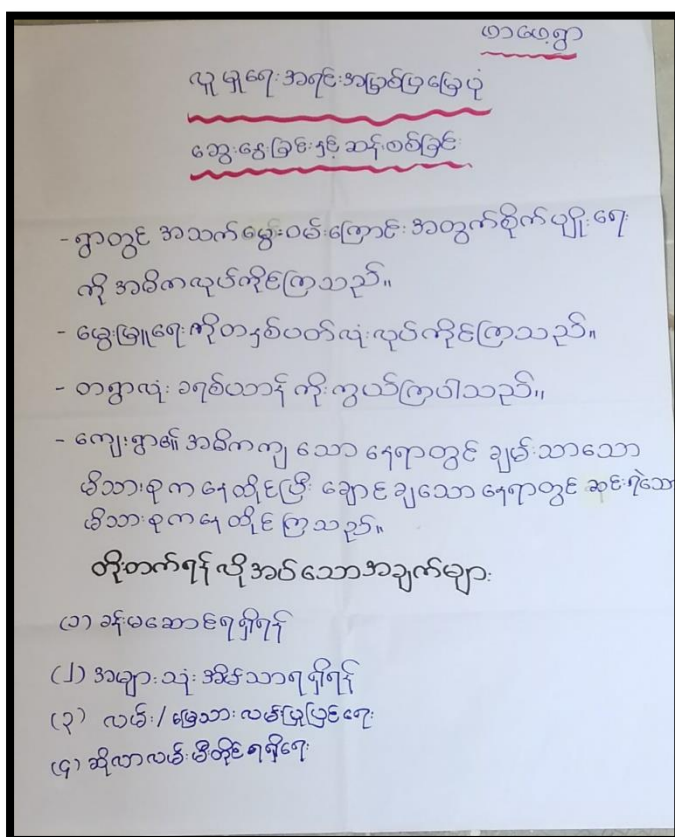 ဟာဖေ့ရွာ
လူမှုရေးအရင်းအမြစ်ပြမြေပုံ
ဆွေးနွေးခြင်းနှင့် ဆန်းစစ်ခြင်း
- ရွာတွင် အသက်မွေးဝမ်းကြောင်းအတွက်စိုက်ပျိုးရေး
ကို အဓိကလုပ်ကိုင်ကြသည်။
- မွေးမြူရေးကိုတနှစ်ပတ်လုံးလုပ်ကိုင်ကြသည်။
- တရွာလုံး ခရစ်ယာန် ကိုးကွယ်ကြပါသည်။
- ကျေးရွာ၏ အဓိကကျ သော နေရာတွင် ချမ်းသာသော
မိသားစုက နေထိုင်ပြီး ချောင်ချသော နေရာတွင် ဆင်းရဲသော
မိသားစုကနေ ထိုင်ကြသည်။
တိုးတက်ရန် လိုအပ်သောအချက်များ
(၁) ခန်းမဆောင်ရရှိရန်
(၂) အများသုံးအိမ်သာရရှိရန်
(၃) လမ်း/မြေသားလမ်းပြုပြင်ရေး
(၄) ဆိုလာလမ်းမီးတိုင်ရရှိရေး